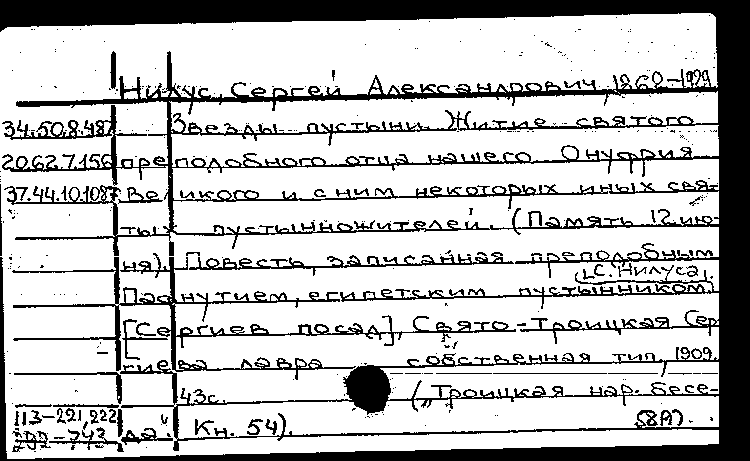 Нилус, Сергей Александрович, 1862-1929
34.50.8.487 Звезды пустыни. Житие святого
20.62.7.156 преподобного отца нашего Онуфрия
37.44.10.1087 Великого и с ним некоторых иных свя-
тых пустынножителей. (Память 12 ию-
ня). Повесть, записанная преподобным
(С. Нилуса).
Пафнутием, египетским пустынником.
[Сергиев посад], Свято-Троицкая Сер-
гиева лавра собственная тип., 1909.
43с. („Троицкая нар. бесе-
113-221,222
282-743 да". Кн. 54). 58А).